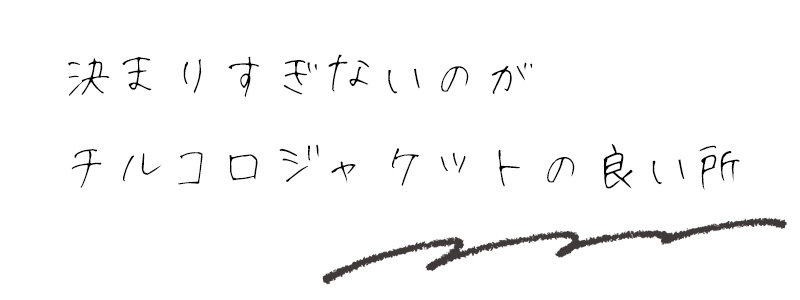 決まりすぎないのが
チルコロジャケットの良い所